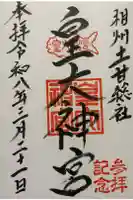 相州土甘総社
皇大神宮
参拝
記念
奉拝令和八年二月二十一日